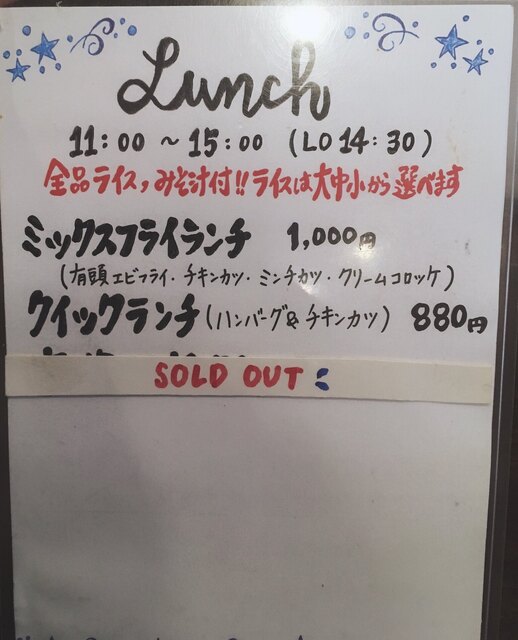 Lunch
11:00 ~ 15:00 (LO 14:30)
全品ライス,みそ汁付!! ライスは大中小から選べます
ミックスフライランチ 1,000円
(有頭エビフライ・チキンカツ・ミンチカツ・クリームコロッケ)
クイックランチ (ハンバーグ&チキンカツ) 880円
SOLD OUT